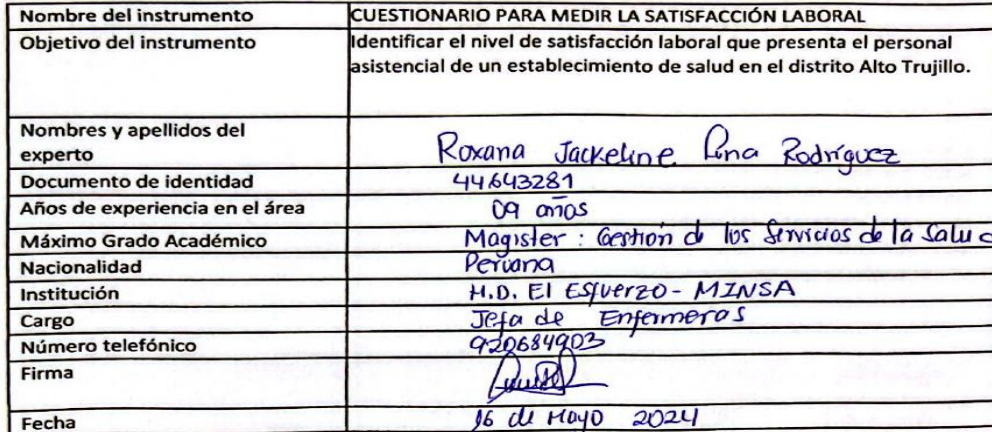 Nombre del instrumento CUESTIONARIO PARA MEDIR LA SATISFACCIÓN LABORAL
Objetivo del instrumento Identificar el nivel de satisfacción laboral que presenta el personal
asistencial de un establecimiento de salud en el distrito Alto Trujillo.
Nombres y apellidos del
experto Roxana Jackeline Rodríguez
Documento de identidad 44643281
Años de experiencia en el área 09 años
Máximo Grado Académico Magister : Gestión de los Servicios de la Salud
Nacionalidad Peruana
Institución H.D. El Esfuerzo - MINSA
Cargo Jefa de Enfermeras
Número telefónico 920684903
Firma
Fecha 16 de Mayo 2024